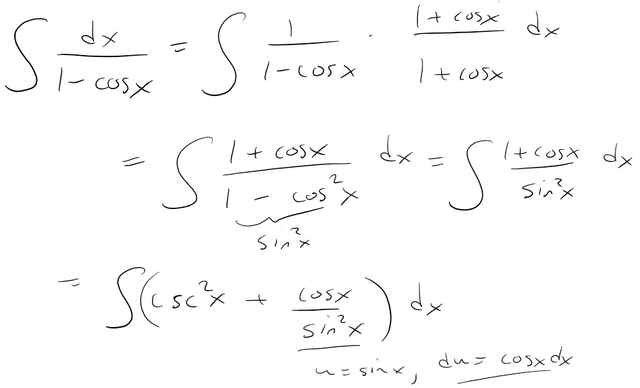 ∫ dx/(1-cosx) = ∫ 1/(1-cosx) · (1+cosx)/(1+cosx) dx
= ∫ (1+cosx)/(1-cos²x) dx = ∫ (1+cosx)/sin²x dx
sin²x
= ∫(csc²x + cosx/sin²x) dx
u=sinx, du=cosxdx